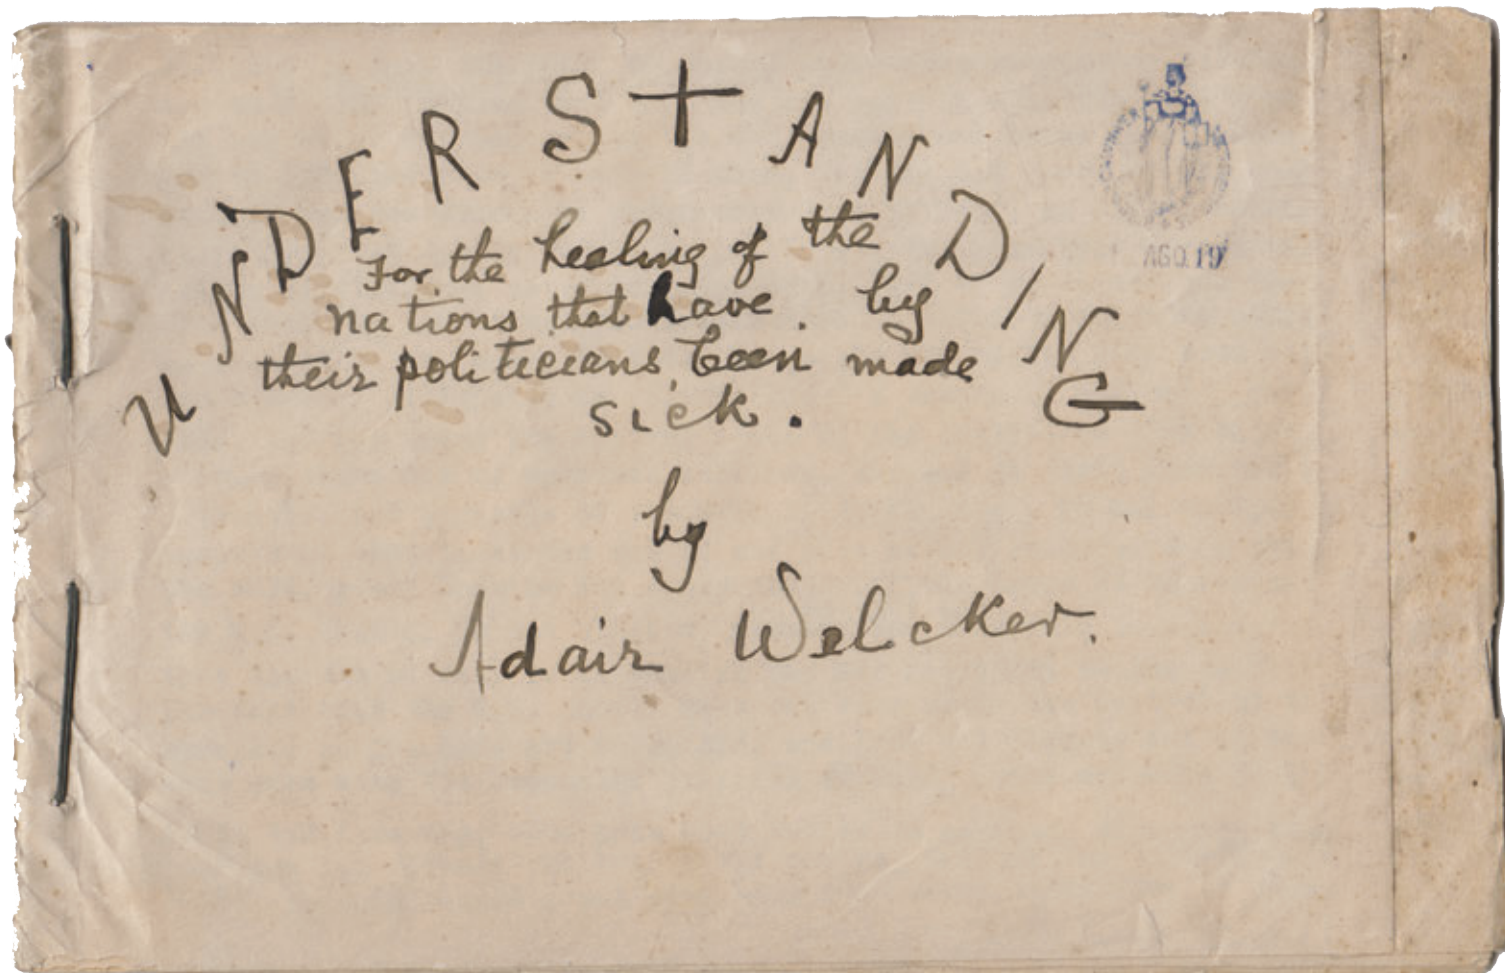 UNDERSTANDING
For the healing of the
nations that have by
their politicians, been made
sick.
by
Adair Welcker.
AGO.19